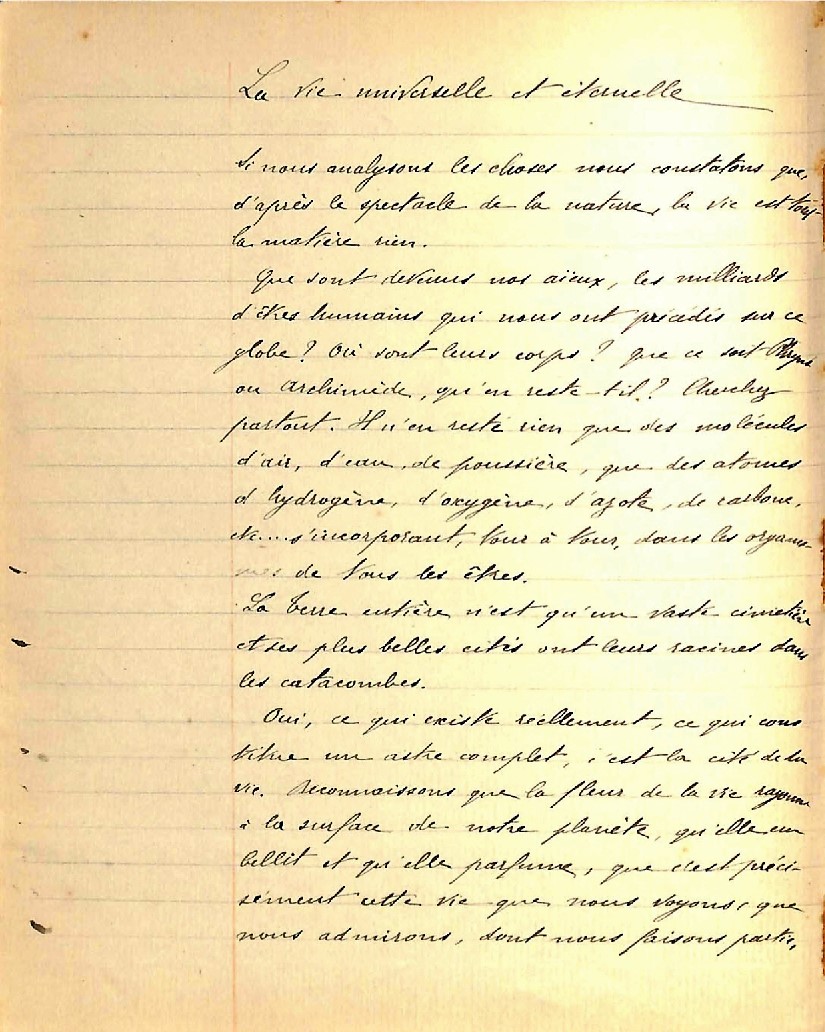 La vie universelle et éternelle
Si nous analysons les choses nous constatons que,
d'après le spectacle de la nature, la vie est tout
la matière rien.
Que sont devenus nos aïeux, les milliards
d'êtres humains qui nous ont précédés sur ce
globe ? Où sont leurs corps ? que ce soit
ou Archimède, qu'en reste-til ? Cherchez
partout. Il n'en reste rien que des molécules
d'air, d'eau, de poussière, que des atomes
d'hydrogène, d'oxygène, d'azote, de carbone,
etc.... s'incorporant, tour à tour, dans les organis-
mes de tous les êtres.
La Terre entière n'est qu'un vaste cimetière
et ses plus belles cités ont leurs racines dans
les catacombes.
Oui, ce qui existe réellement, ce qui cons
titue un astre complet, c'est la cité de la
vie. Reconnaissons que la fleur de la vie rayonne
à la surface de notre planète, qu'elle em
bellit et qu'elle parfume, que c'est préci-
sément cette vie que nous voyons, que
nous admirons, dont nous faisons partie,